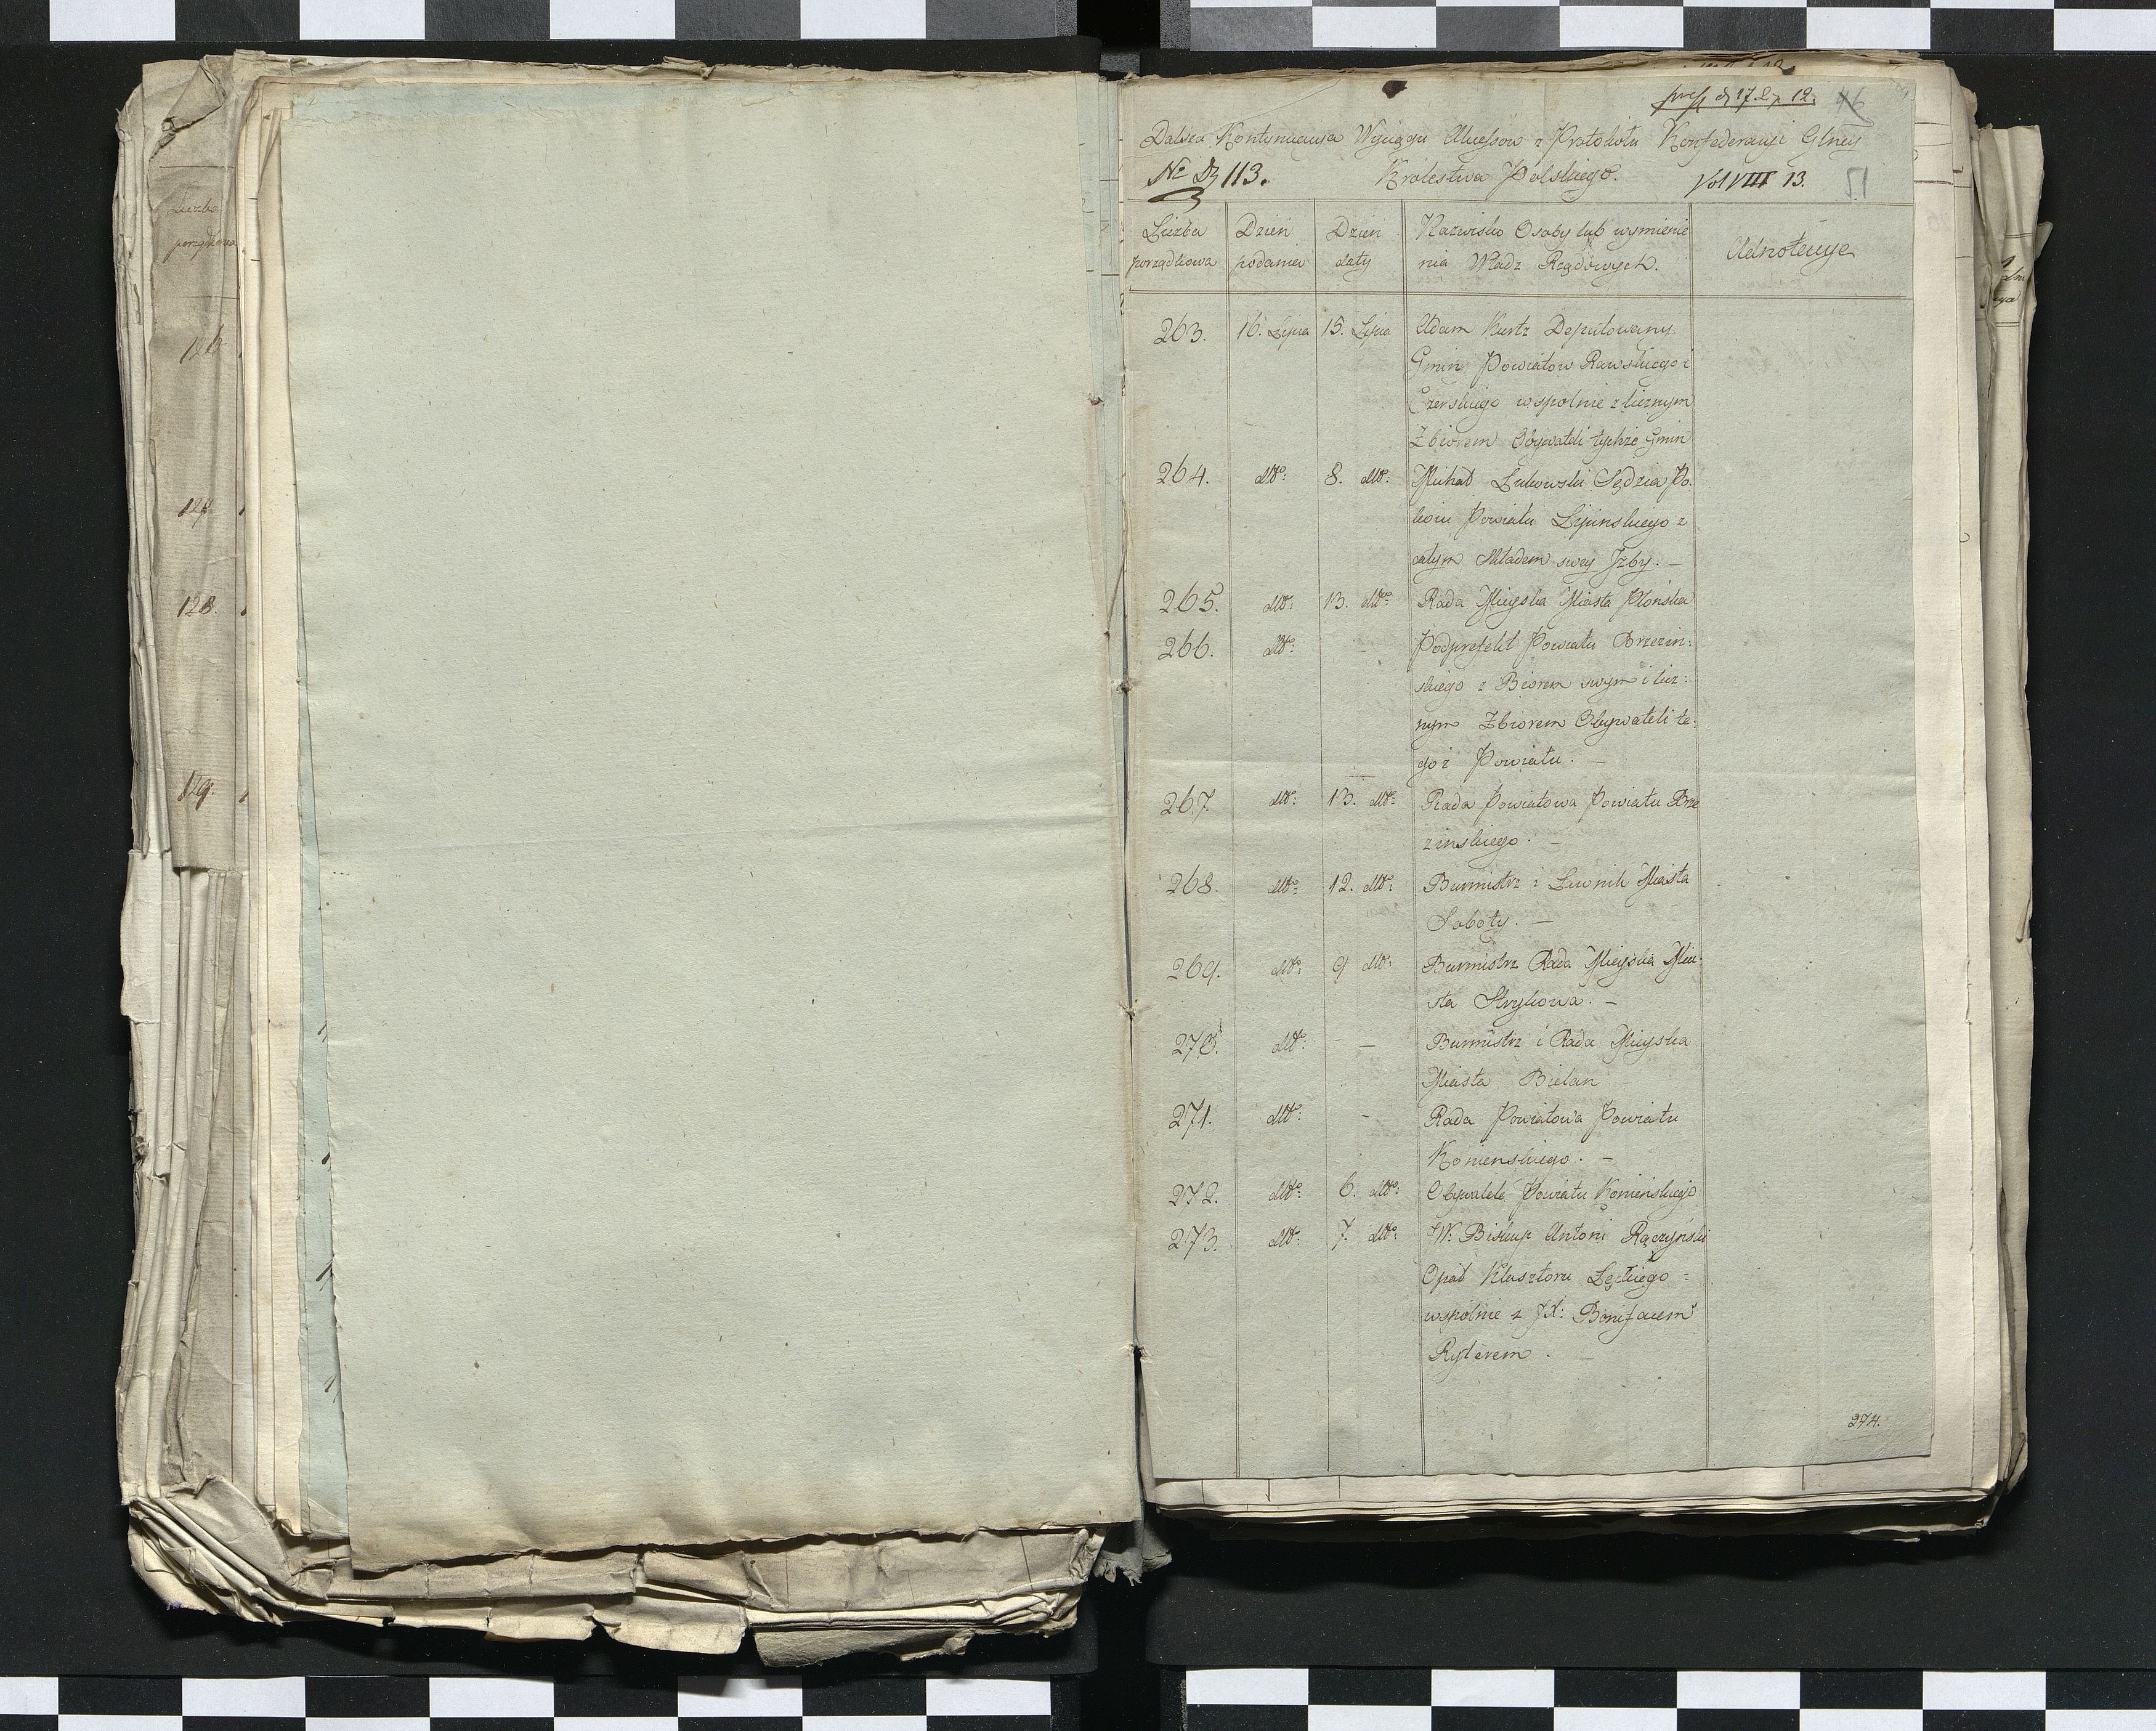 Liczba
porządkowa
126
127.
128.
129.
d 17 Lp 12. 46
Dalsza Kontynuacya Wyciągu Akcessow z Protokółu Konfederacyi Glney
No 113. Królestwa Polskiego. Vol VIII 13. 51
Liczba porządkowa | Dzień podania | Dzień daty | Nazwisko Osoby lub wymienie
nia Władz Rządowych. | Adnotacye
263. 16. Lipca 15. Lipca Adam Kurtz Deputowany
Gmin Powiatow Rawskiego i
Czerskiego wspolnie z licznym
Zbiorem Obywateli tychże Gmin
264. dtto: 8. dtto: Michał Łukowski Sędzia Po-
koiu Powiatu Lipinskiego z
całym składem swey Jzby. —
265. dtto: 13. dtto: Rada Mieyska Miasta Płońska
266. dtto: — Podprefekt Powiatu Brzezin:
skiego z Biorem swym i licz:
nym Zbiorem Obywateli te:
goż Powiatu. —
267. dtto: 13. dtto: Rada Powiatowa Powiatu Brze
zinskiego. —
268. dtto: 12. dtto: Burmistrz i Ławnik Miasta
Soboty. —
269. dtto: 9 dtto: Burmistrz Rada Mieyska Mia:
sta Strykowa. —
270. dtto: — Burmistrz i Rada Mieyska
Miasta Bielan
271. dtto: — Rada Powiatowa Powiatu
Konienskiego. —
272. dtto: 6. dtto: Obywatele Powiatu Konienskiego
273. dtto: 7. dtto: JW. Biskup Antoni Rączyński
Opat Klasztoru Lędzkiego
wspólnie z JX: Bonifacem
Ryterem. —
274.